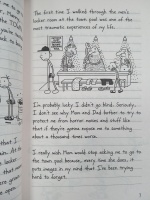 The first time I walked through the men's
locker room at the town pool was one of the
most traumatic experiences of my life.
I'm probably lucky I didn't go blind. Seriously,
I don't see why Mom and Dad bother to try to
protect me from horror movies and stuff like
that if they're gonna expose me to something
about a thousand times worse.
I really wish Mom would stop asking me to go to
the town pool, because every time she does, it
puts images in my mind that I've been trying
hard to forget.